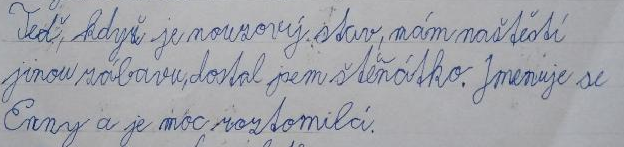 Teď, když je nouzový stav, mám naštěstí
jinou zábavu, dostal jsem štěňátko. Jmenuje se
Enny a je moc roztomilá.